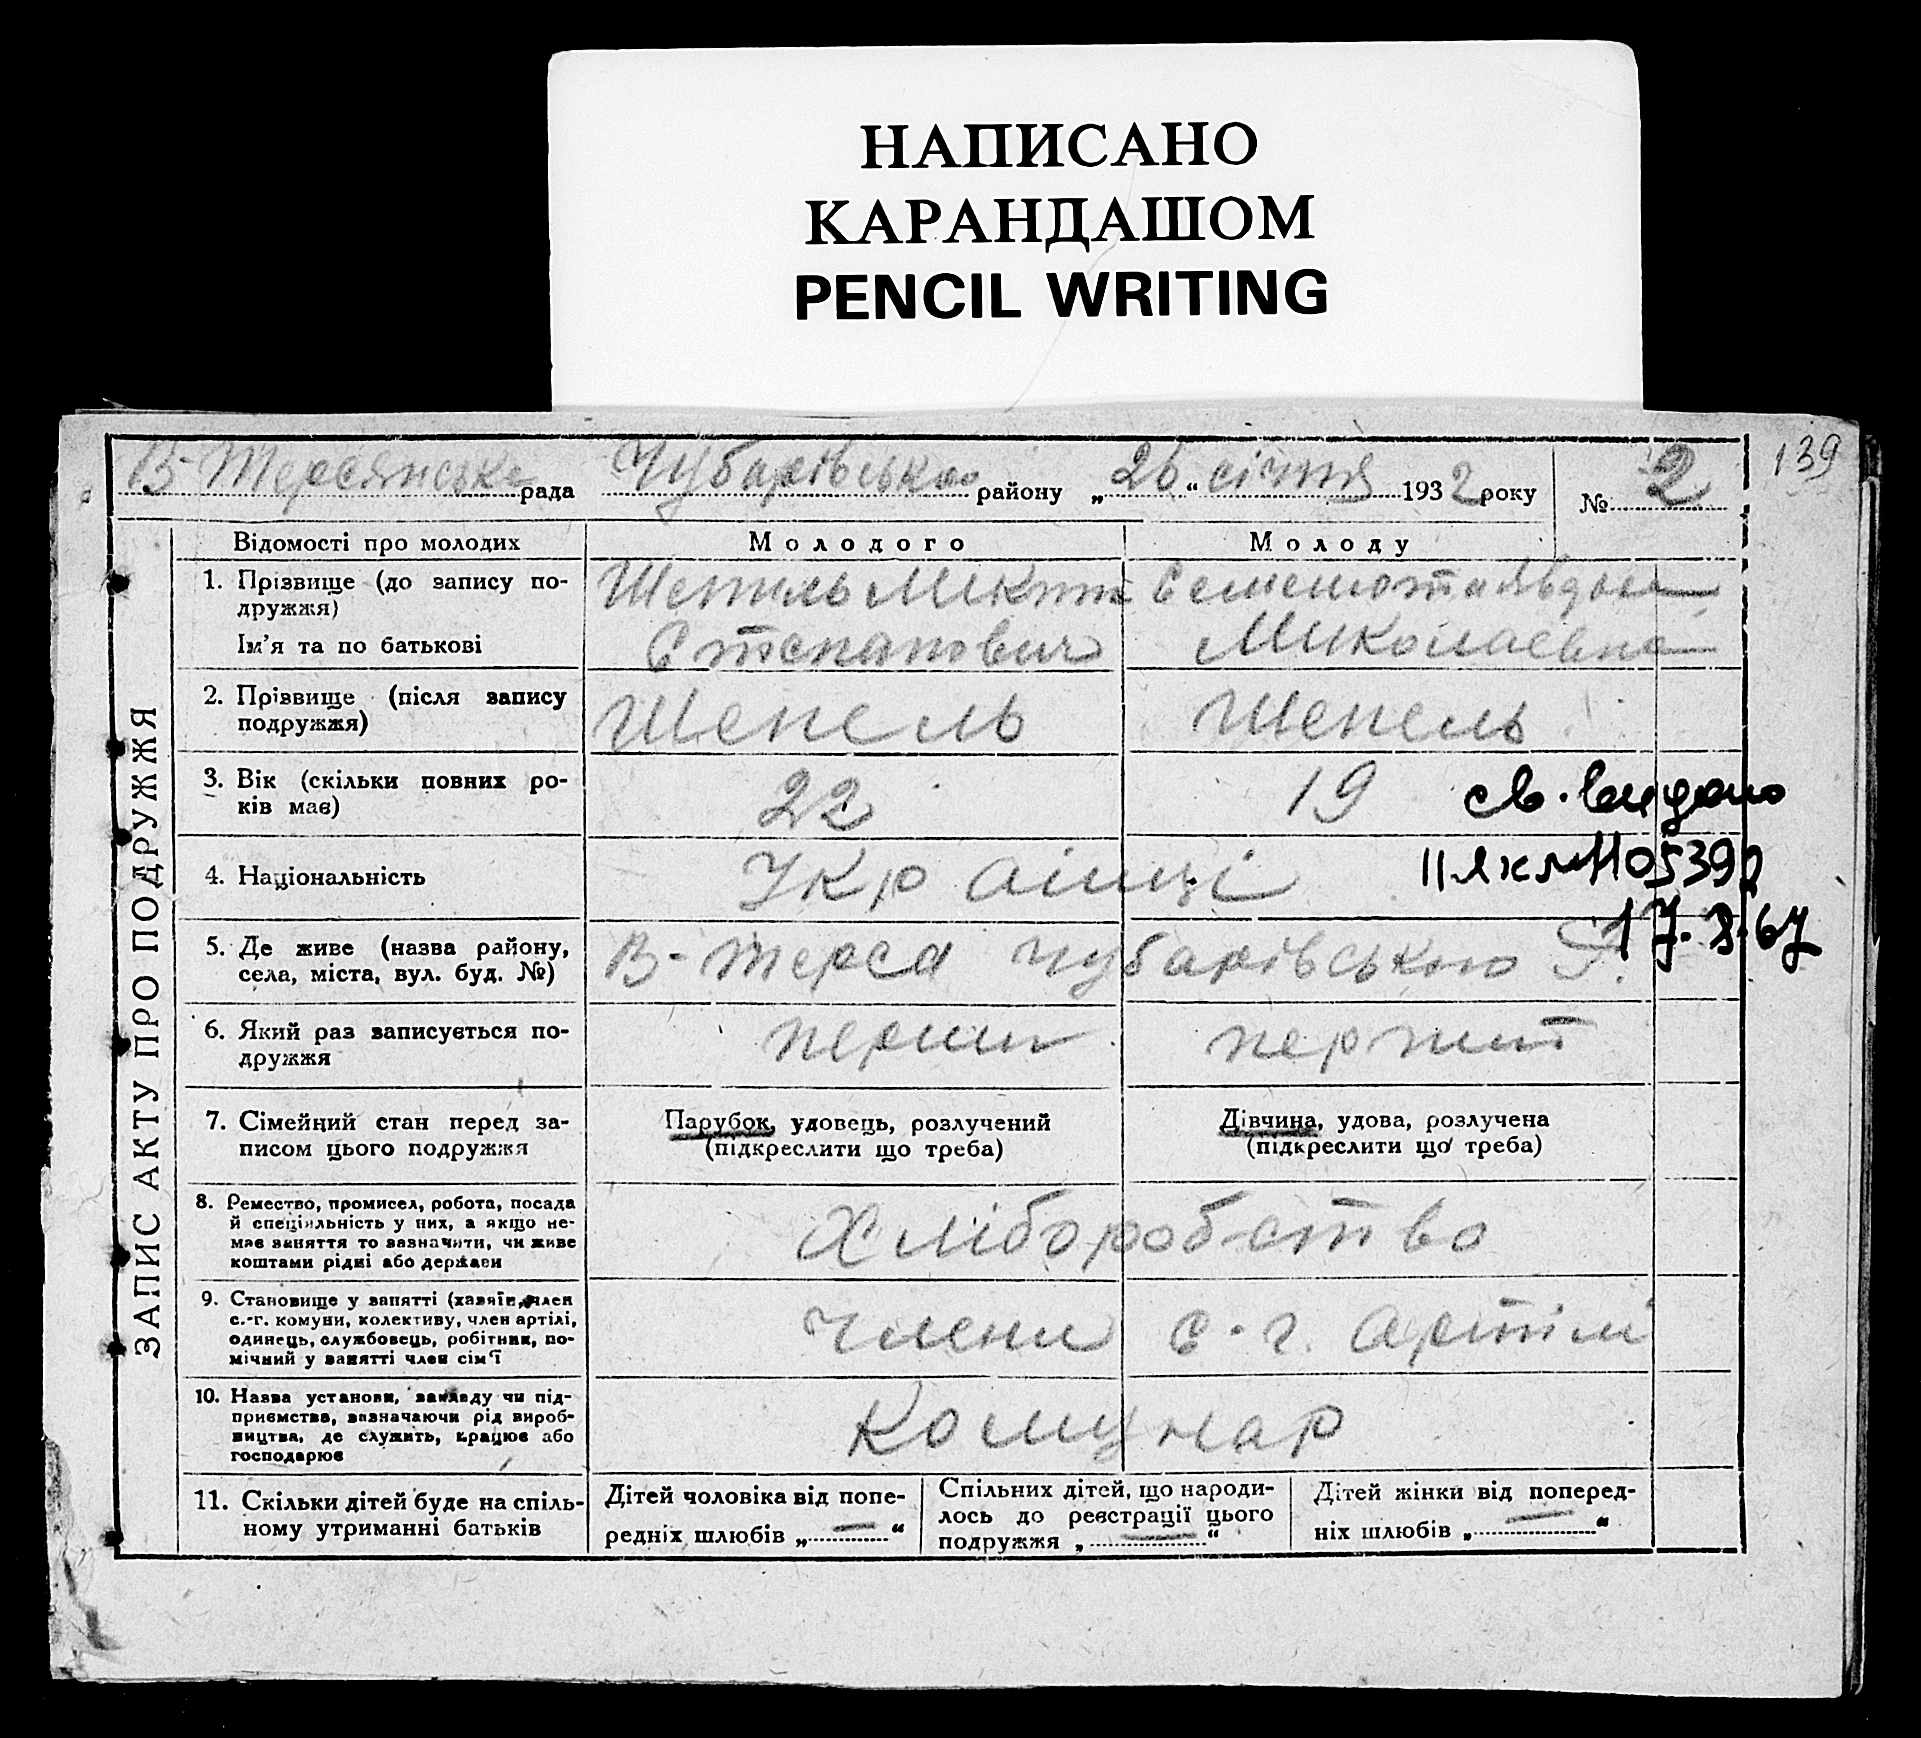 НАПИСАНО
КАРАНДАШОМ
PENCIL WRITING
139
В-Терсянська рада Чубарівського району „26“ січня 1932 року № 2
ЗАПИС АКТУ ПРО ПОДРУЖЖЯ
Відомості про молодих Молодого Молоду
1. Прізвище (до запису по-
дружжя)
Ім'я та по батькові
Шепель Микита
Степанович
Явдоха
Миколаевна
2. Прізвище (після запису
подружжя)
Шепель Шепель
3. Вік (скільки повних ро-
ків має)
22 19
св. видано
II ЯК № 1105390
17.8.67
4. Національність
Українці
5. Де живе (назва району,
села, міста, вул. буд. №)
В-Терса Чубарівського Р.
6. Який раз записується по-
дружжя
перший перший
7. Сімейний стан перед за-
писом цього подружжя
Парубок, удовець, розлучений
(підкреслити що треба)
Дівчина, удова, розлучена
(підкреслити що треба)
8. Ремество, промисел, робота, посада
й спеціяльність у них, а якщо не-
має заняття то зазначити, чи живе
коштами рідні або держави
Хліборобство
9. Становище у занятті (хазяїн, член
с.-г. комуни, колективу, член артілі,
одинець, службовець, робітник, по-
мічний у занятті член сім'ї
Члени с.-г. артілі
10. Назва установи, закладу чи під-
приємства, зазначаючи рід вироб-
ництва, де служить, працює або
господарює
Комунар
11. Скільки дітей буде на спіль-
ному утриманні батьків
Дітей чоловіка від попе-
редніх шлюбів „—“
Спільних дітей, що народи-
лось до реєстрації цього
подружжя „—“
Дітей жінки від поперед-
ніх шлюбів „—“